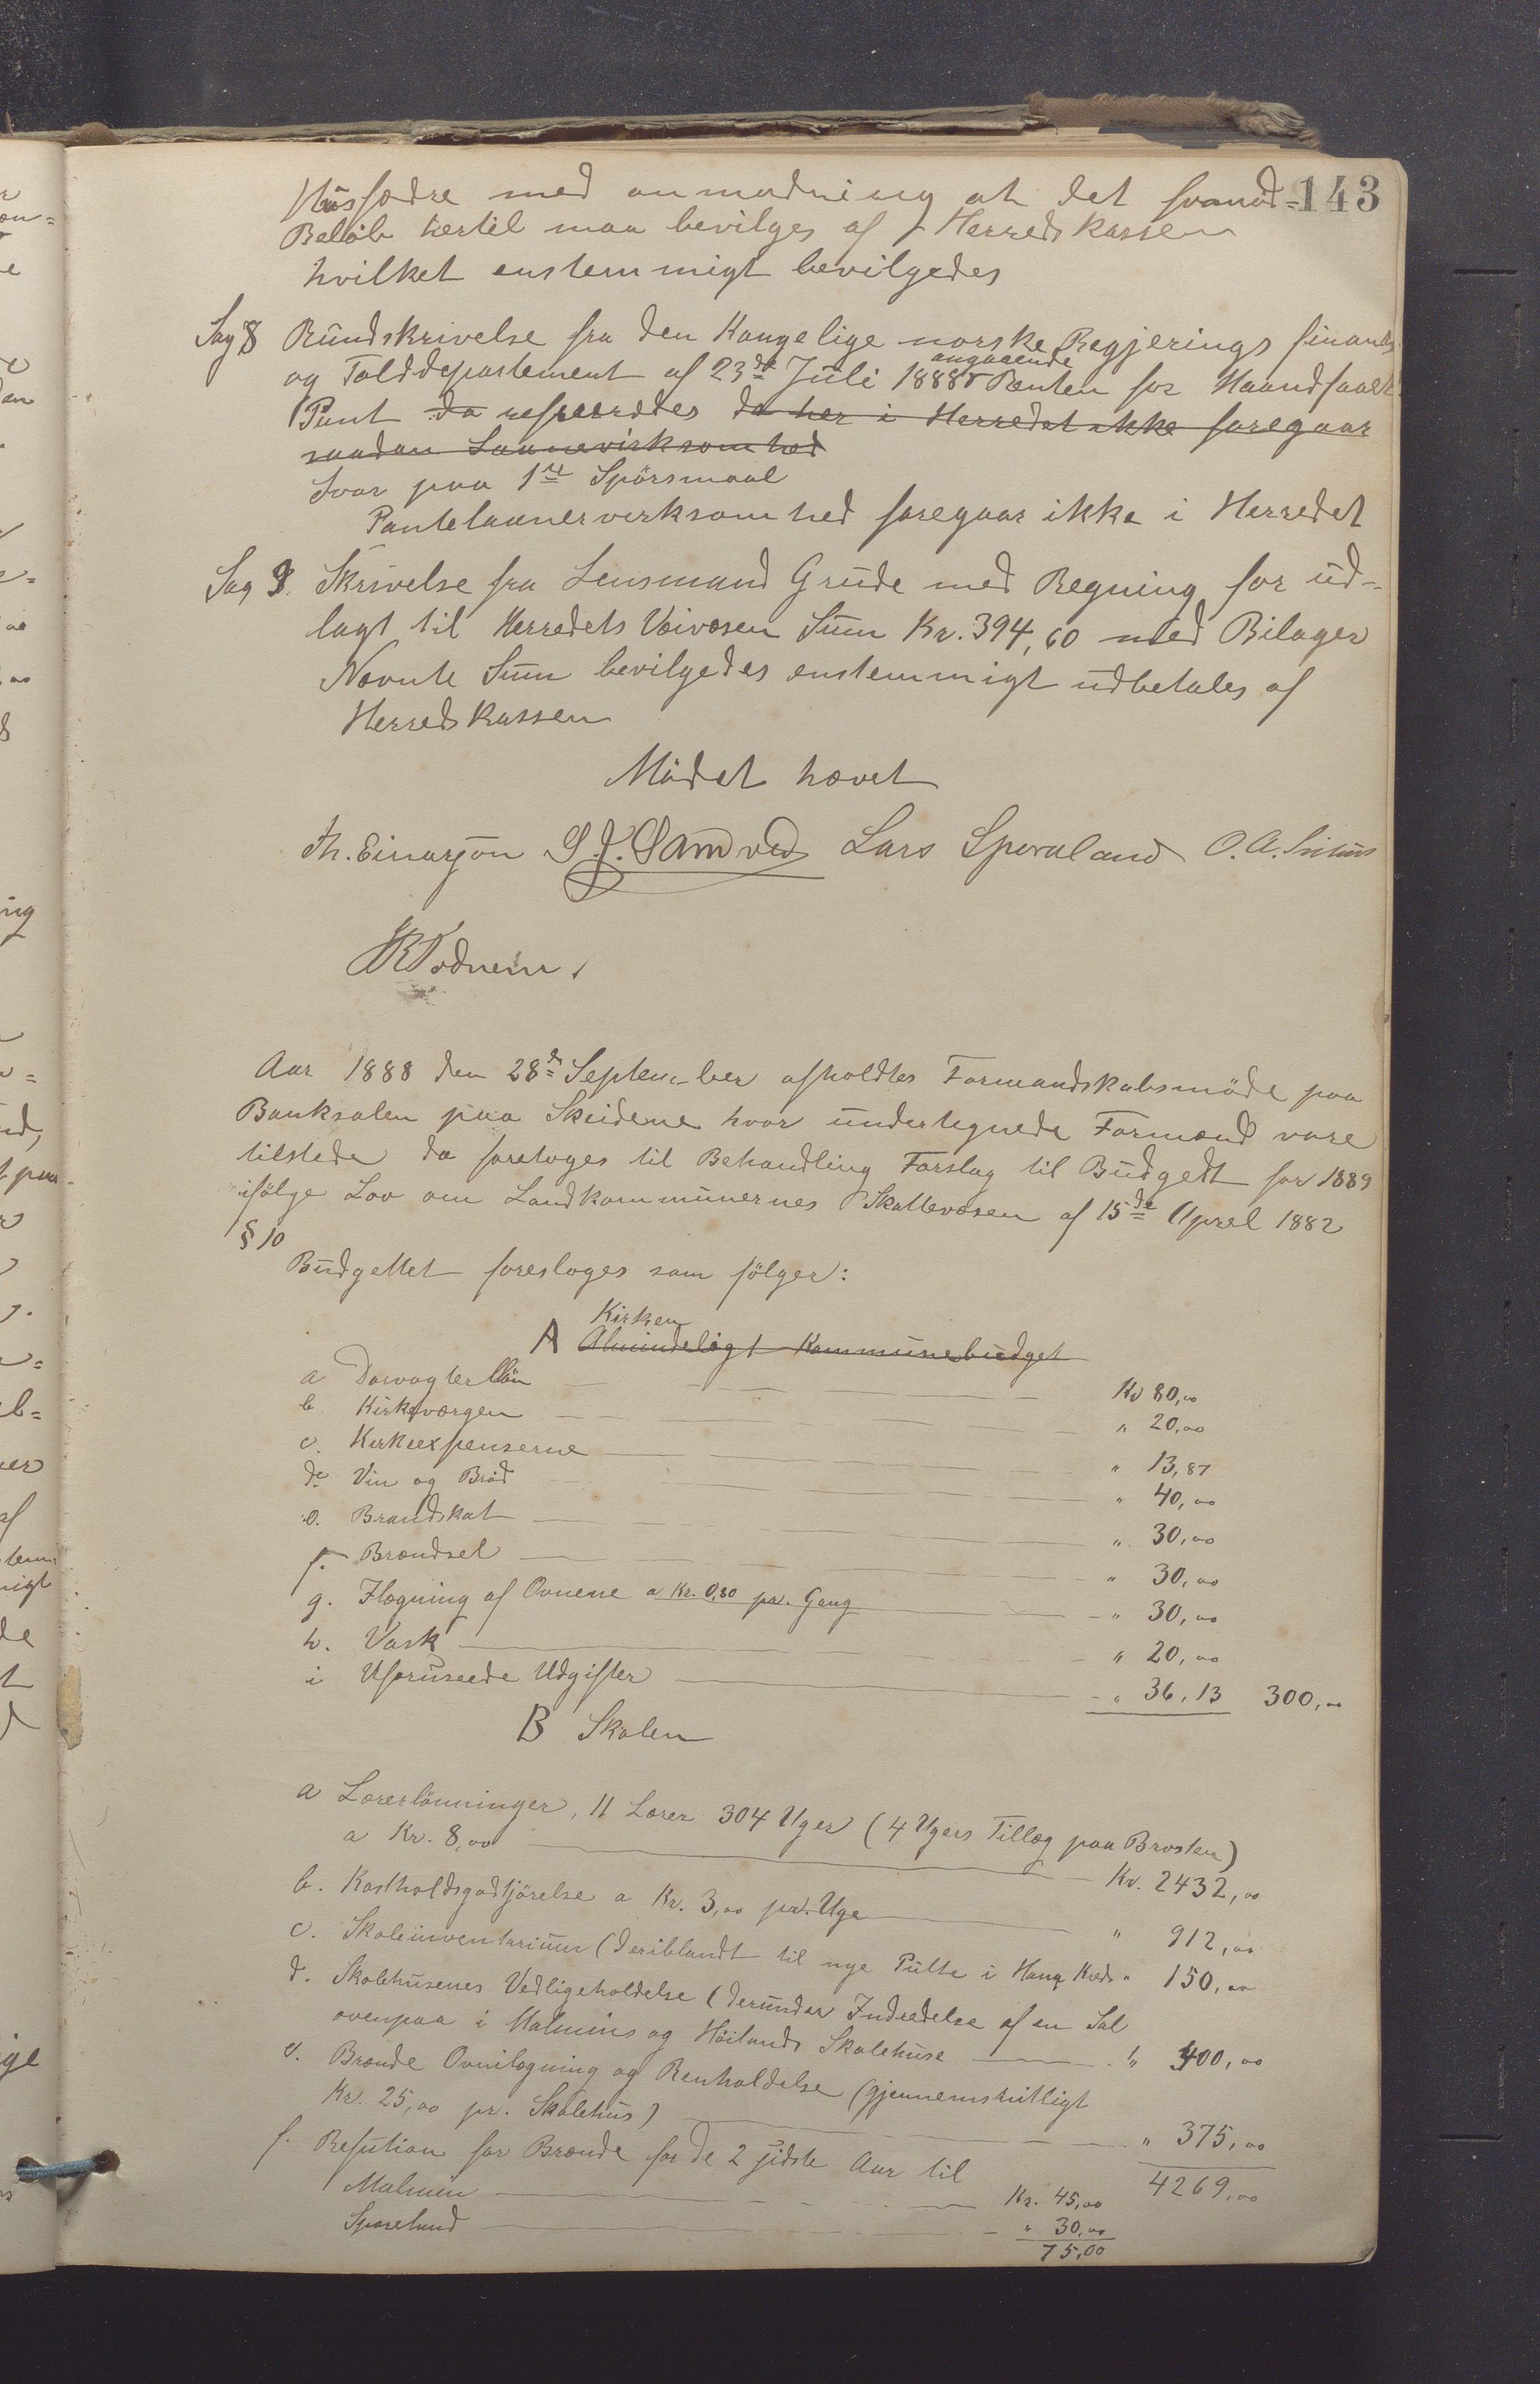 143
Husfædre med anmodning at det fornød-
Beløb hertil maa bevilges af Herredskassen
hvilket enstemmigt bevilgedes
Sag 8 Rundskrivelse fra den Kongelige norske Regjerings finants
og Tolddepartement af 23de Juli 1888 angaaende Renten for Haandfaaet
Pant da refereredes da her i Herredet ikke foregaar
saadan Laanevirksomhed
Svar paa 1ste Spörsmaal
Pantelaanervirksomhed foregaar ikke i Herredet
Sag 9. Skrivelse fra Lensmand Grude med Regning for ud-
lagt til Herredets Veivæsen Sum Kr. 394,60 med Bilager
Nævnte Sum bevilgedes enstemmigt udbetales af
Herredskassen
Mödet hævet
Th. Einarson S. J. Sandved Lars Sporaland O. A.
Aar 1888 den 28de September afholdtes Formandskabsmöde paa
Banksalen paa Skeidene hvor undertegnede Formænd vare
tilstede da foretoges til Behandling Forslag til Budgedt for 1889
ifölge Lov om Landkommunernes Skattevæsen af 15de April 1882
§ 10
Budgettet foresloges som fölger:
Kirken
A Almindeligt Kommunebudget
a Dørvogter Lön Kr 80,00
b Kirkeværgen " 20,00
c. Kirkeexpenserne " 13,87
de Vin og Bröd " 40,00
e. Brandskat " 30,00
f. Brændsel " 30,00
g. Ilægning af Ovnene a Kr. 0,80 pr. Gang " 30,00
h. Vask " 20,00
i Uforuseede Udgifter " 36,13 300,00
B Skolen
a Lærerlönninger, 11 Lærer 304 Uger (4 Ugers Tillæg paa Brosten)
a Kr. 8,00 Kr. 2432,00
b. Kostholdsgodtjörelse a Kr. 3,00 pr. Uge " 912,00
c. Skoleinventarium (deriblandt til nye Pulte i Hana Kreds " 150,00
d. Skolehusenes Vedligeholdelse (derunder Indredelse af en Sal
ovenpaa i Malmins og Höilands Skolehuse " 400,00
e. Brænde Ovnilægning og Renholdelse (gjennemsnitligt
Kr. 25,00 pr. Skolehus) " 375,00
f. Refution for Brænde for de 2 sidste Aar til 4269,00
Malmin Kr. 45,00
Sporeland " 30,00
75,00